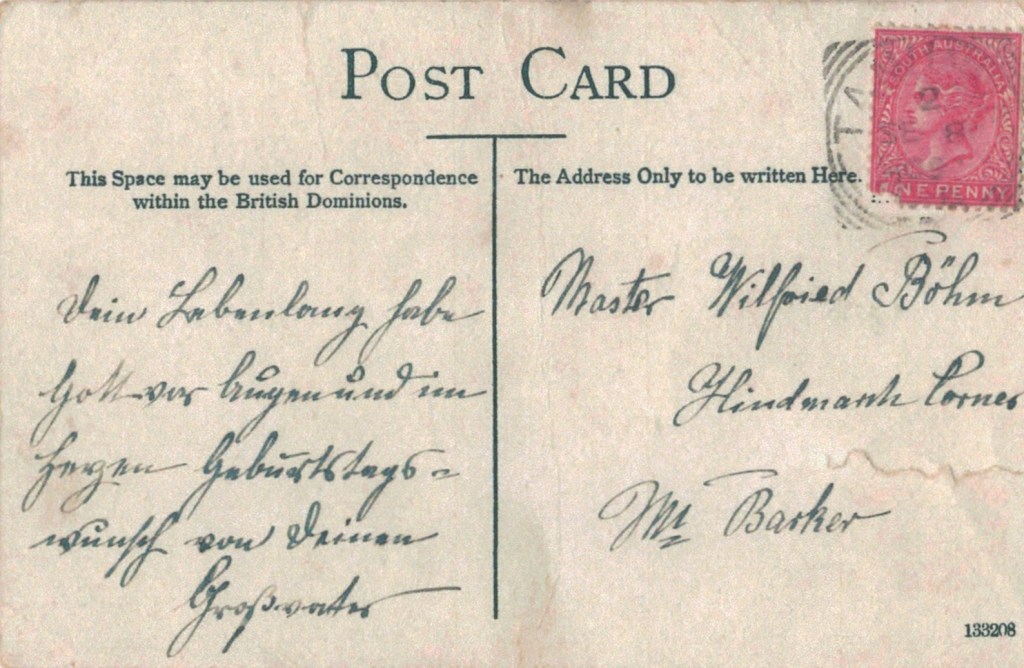 POST CARD
This Space may be used for Correspondence
within the British Dominions.
The Address Only to be written Here.
SOUTH AUSTRALIA
ONE PENNY
Dein Lebenlang habe
Gott vor Augen und im
Herzen Geburtstags-
wunsch von Deinen
Großvater
Master Wilfried Böhm
Hindmarsh Corner
Mt Barker
133208